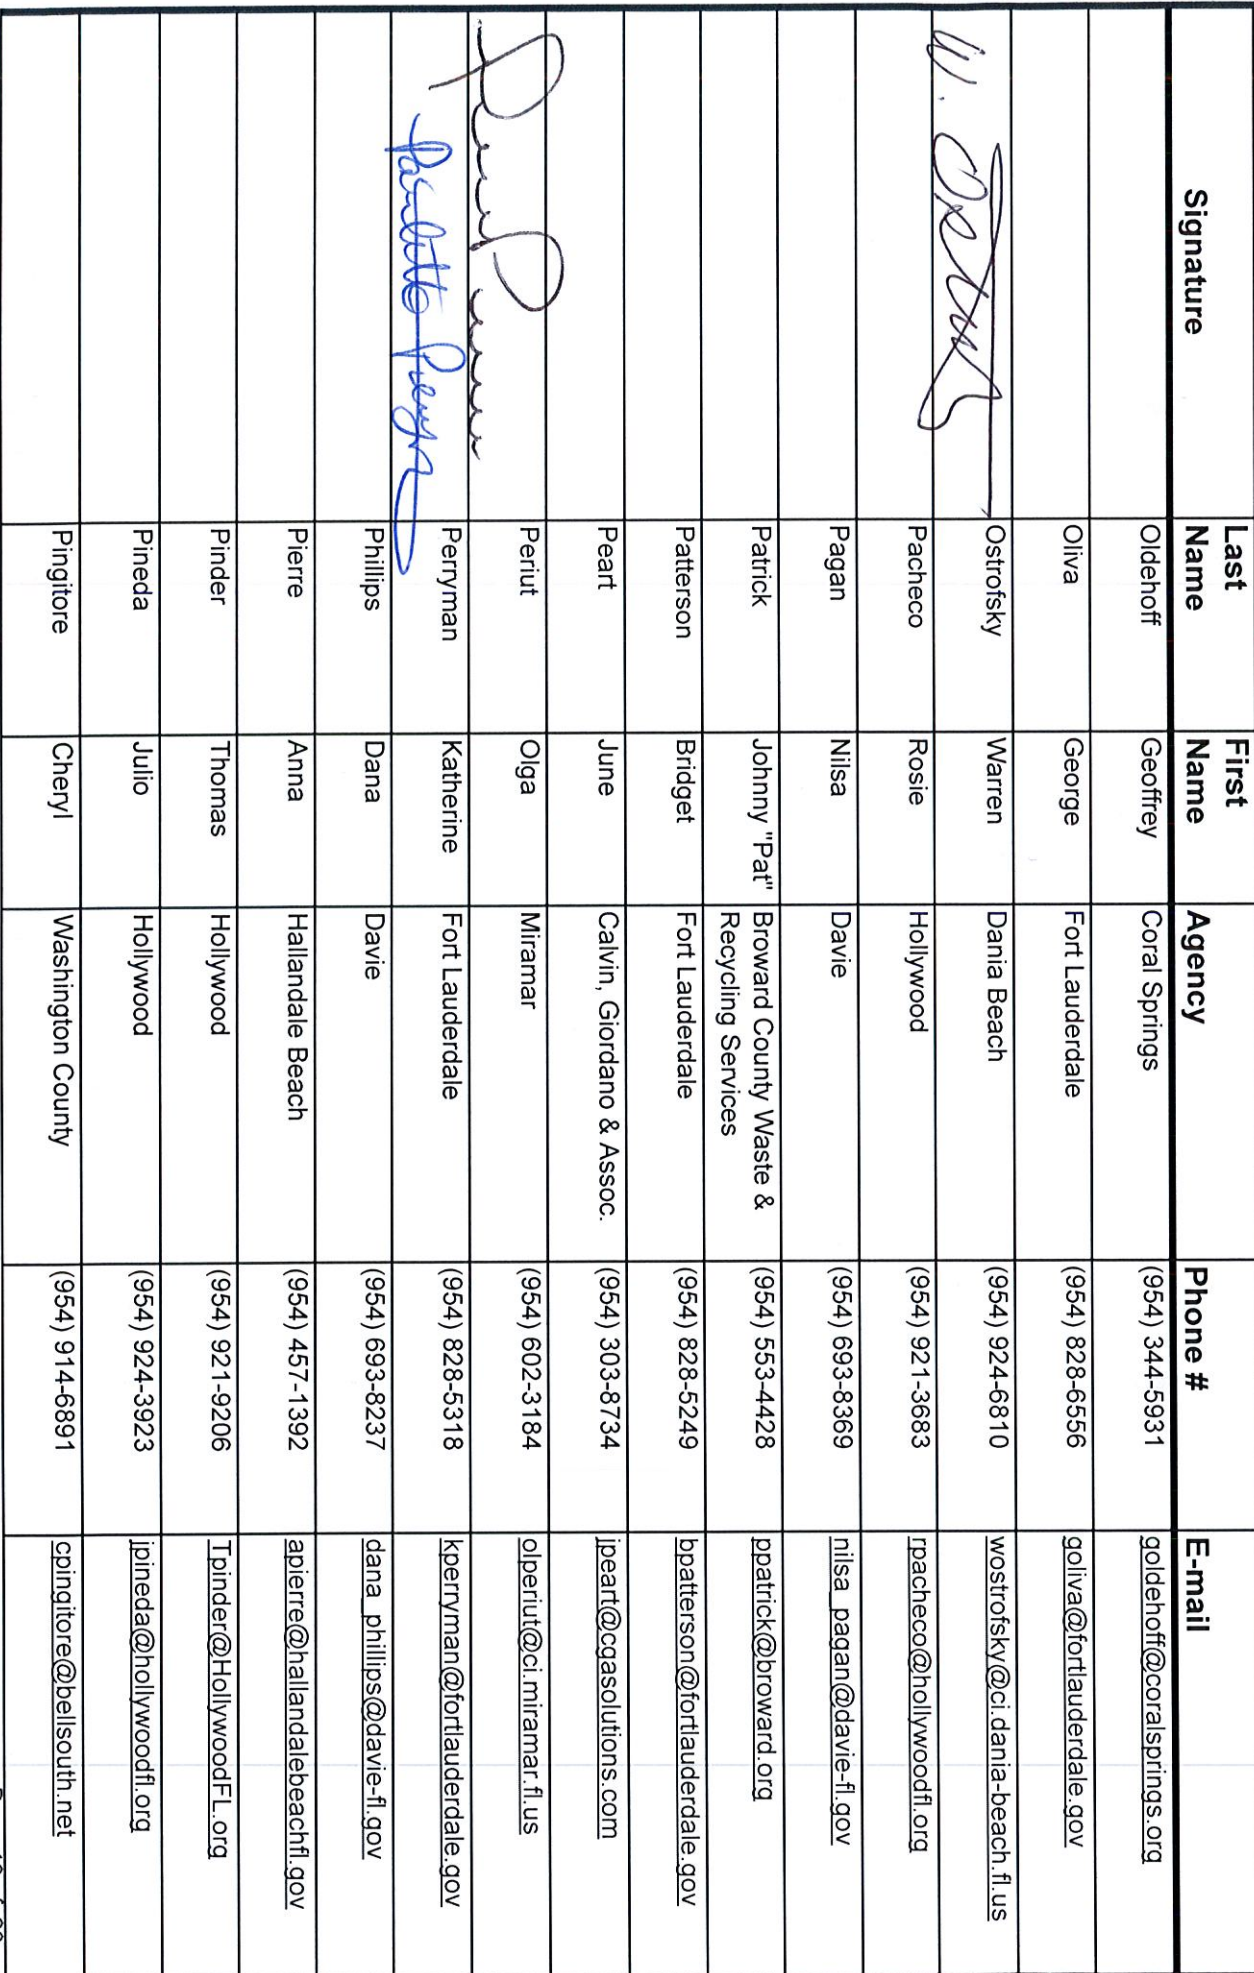 Signature Last Name First Name Agency Phone # E-mail
Oldehoff Geoffrey Coral Springs (954) 344-5931 goldehoff@coralsprings.org
Oliva George Fort Lauderdale (954) 828-6556 goliva@fortlauderdale.gov
W. Ostrofsky Warren Dania Beach (954) 924-6810 wostrofsky@ci.dania-beach.fl.us
Pacheco Rosie Hollywood (954) 921-3683 rpacheco@hollywoodfl.org
Pagan Nilsa Davie (954) 693-8369 nilsa_pagan@davie-fl.gov
Patrick Johnny "Pat" Broward County Waste & (954) 553-4428 ppatrick@broward.org
Recycling Services
Patterson Bridget Fort Lauderdale (954) 828-5249 bpatterson@fortlauderdale.gov
Peart June Calvin, Giordano & Assoc. (954) 303-8734 jpeart@cgasolutions.com
Periut Olga Miramar (954) 602-3184 olperiut@ci.miramar.fl.us
Perryman Katherine Fort Lauderdale (954) 828-5318 kperryman@fortlauderdale.gov
Phillips Dana Davie (954) 693-8237 dana_phillips@davie-fl.gov
Pierre Anna Hallandale Beach (954) 457-1392 apierre@hallandalebeachfl.gov
Pinder Thomas Hollywood (954) 921-9206 Tpinder@HollywoodFL.org
Pineda Julio Hollywood (954) 924-3923 jpineda@hollywoodfl.org
Pingitore Cheryl Washington County (954) 914-6891 cpingitore@bellsouth.net